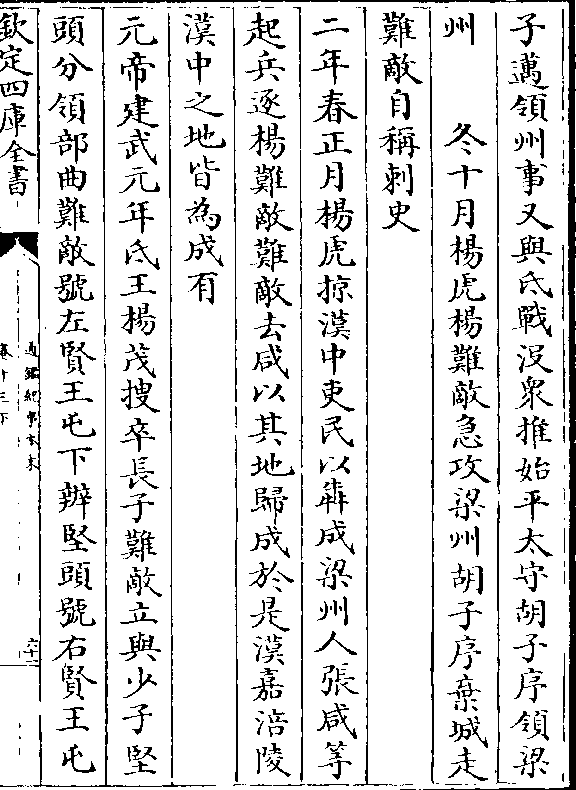 子邁領州事又與氐戰没衆推始平太守胡子序領梁
州　　冬十月楊虎楊難敵急攻梁州胡子序棄城走
難敵自稱刺史
二年春正月楊虎掠漢中吏民以犇成梁州人張咸等
起兵逐楊難敵難敵去咸以其地歸成於是漢嘉涪陵
漢中之地皆為成有
元帝建武元年氐王楊茂搜卒長子難敵立與少子堅
頭分領部曲難敵號左賢王屯下辨堅頭號右賢王屯
欽定四庫全書
通鑑紀事本末
卷十三下
六十二